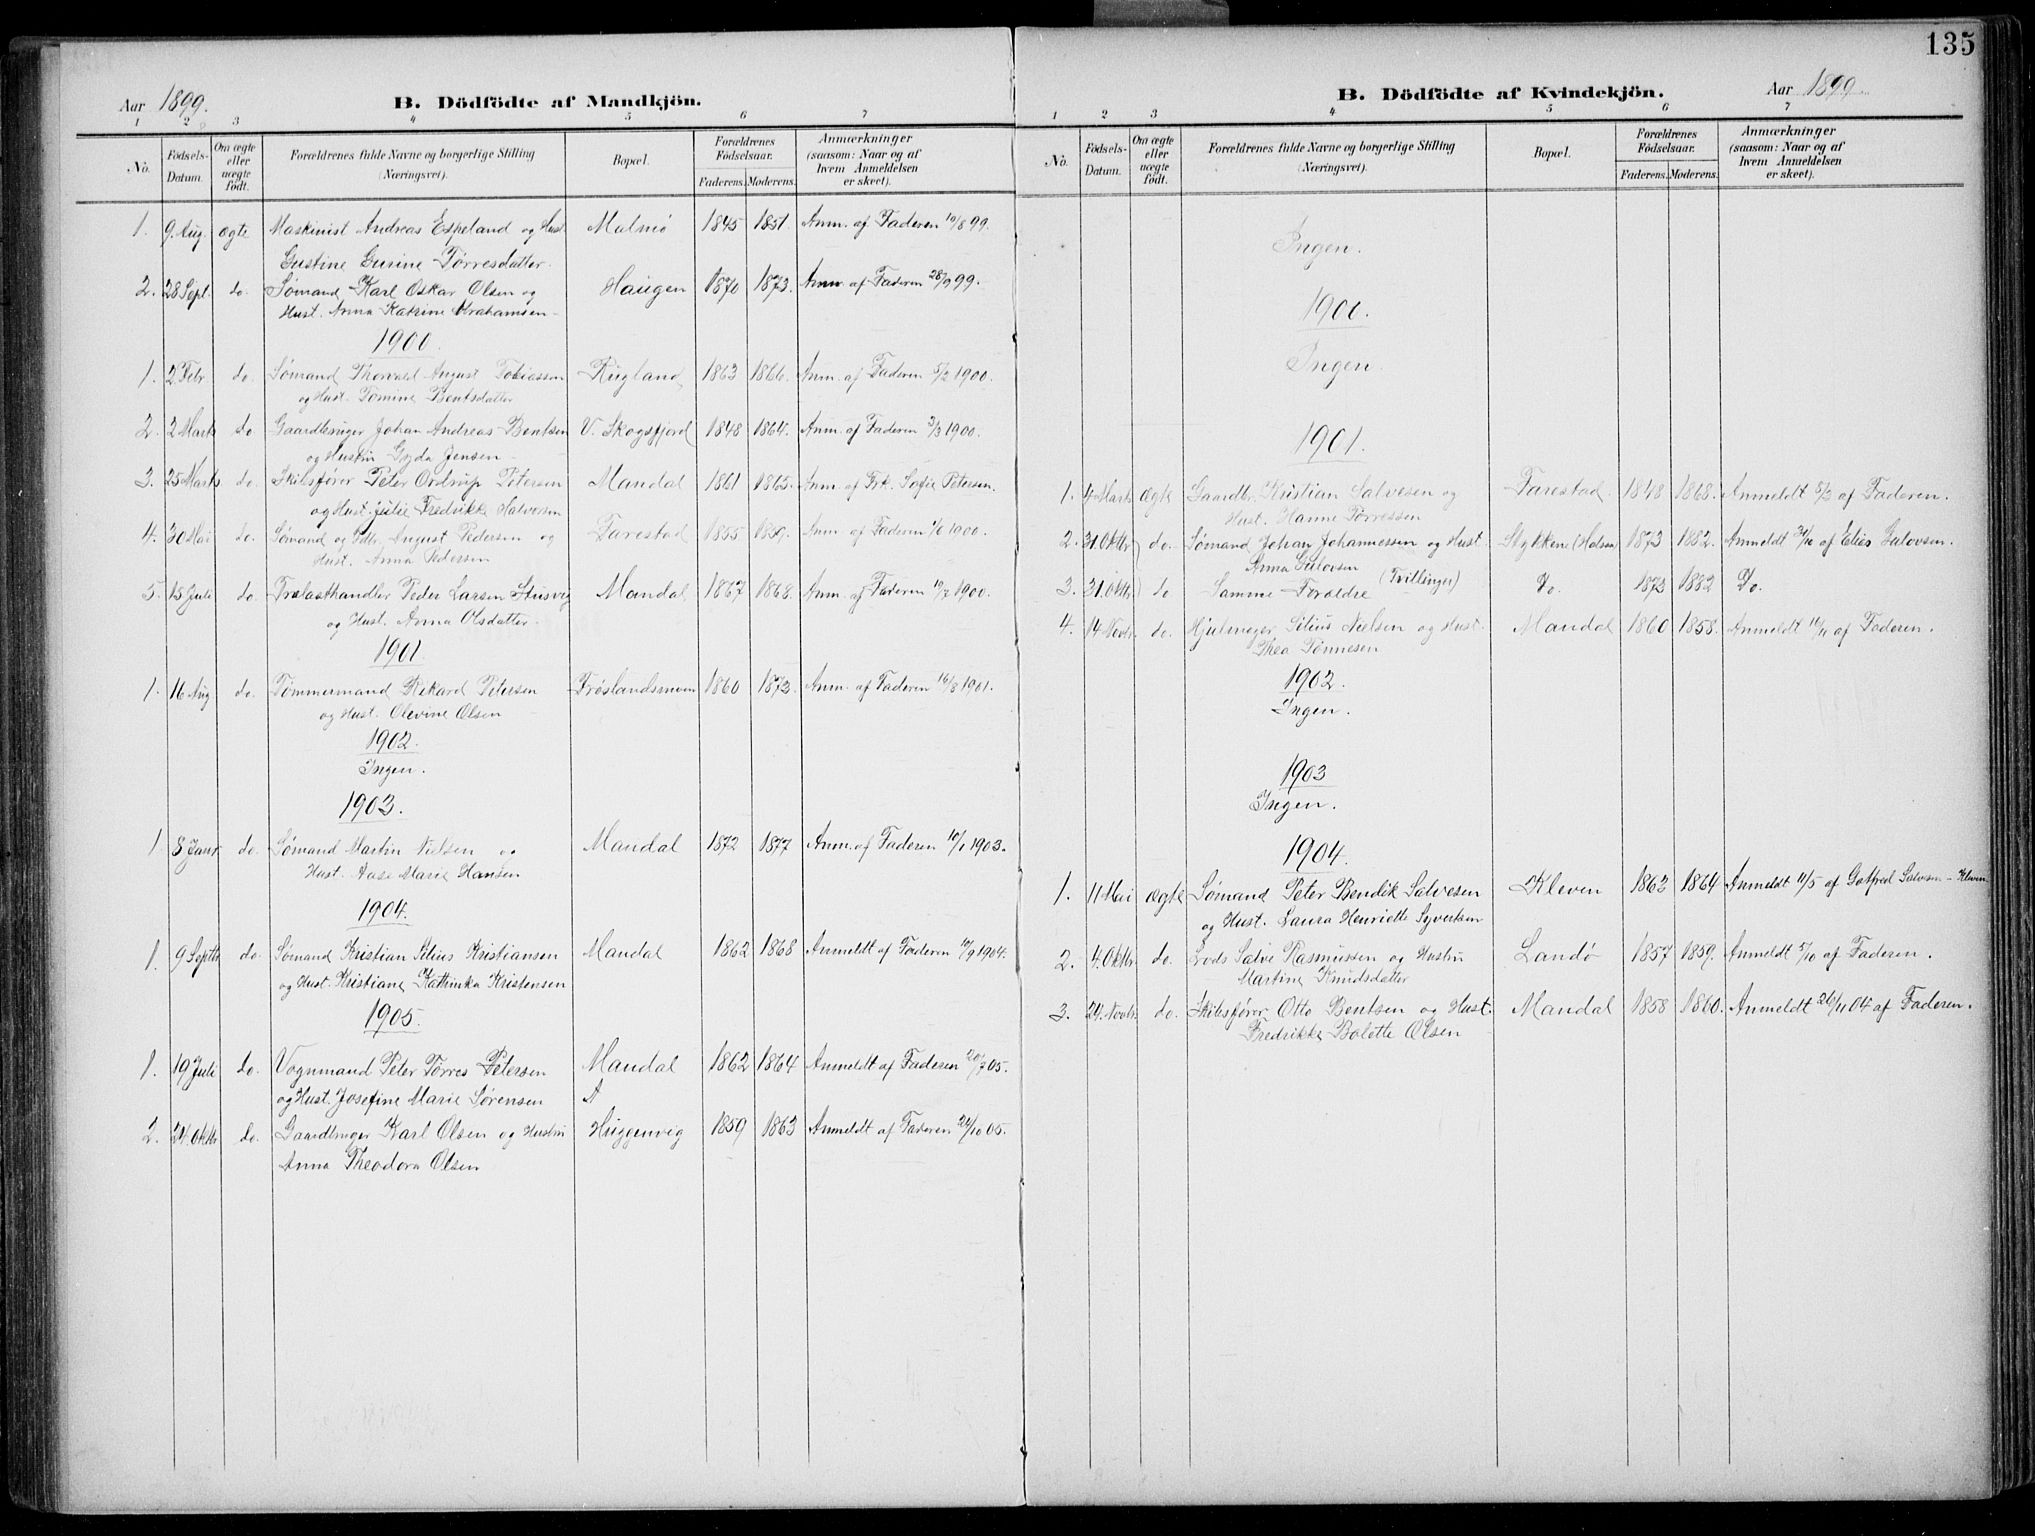 135
Aar 1899.
B. Dödfödte af Mandkjön.
1 2 3 4 5 6 7
No. Födsels-Datum. Om ægte eller uægte födt. Forældrenes fulde Navne og borgerlige Stilling (Næringsvei). Bopæl. Forældrenes Födselsaar. Faderens. Moderens. Anmærkninger (saasom: Naar og af hvem Anmeldelsen er skeet).
1. 9 Aug. ægte Maskinist Andreas Espeland og Hust. Malmø 1845 1851. Anm. af Faderen 10/8 99.
Gustine Gurine Tørresdatter.
2. 28 Sept. do. Sømand Karl Oskar Olsen og Haugen 1870 1873. Anm. af Faderen 28/9 99.
Hust. Anna Katrine Abrahamsen
1900.
1. 2 Febr do. Sømand Thorvald August Tobiassen Rugland 1863 1866. Anm. af Faderen 5/2 1900.
og Hust. Tomine Bentsdatter
2. 2 Marts do Gaardbruger Johan Andreas Bentsen V. Skogsfjord 1848 1864. Anm. af Faderen 3/3 1900.
og Hustru Gyda Jensen
3. 25 Marts do. Skibsfører Peter Ordrup Petersen Mandal 1861 1865. Anm. af Frk. Sofie Petersen.
og Hust. Julie Fredrikke Halvorsen
4. 30 Mai do. Sømand og Gdbr. August Pedersen og Farestad 1855 1859. Anm. af Faderen 1/6 1900.
Hust. Anna Pedersen
5. 15 Juli do. Trælasthandler Peder Larsen Stusvig Mandal 1867 1868. Anm. af Faderen 19/7 1900.
og Hust. Anna Olsdatter
1901.
1. 16 Aug do. Tømmermand Rikard Petersen Frøslandsmoen 1860 1873. Anm. af Faderen 16/8 1901.
og Hust. Olevine Olsen
1902.
Ingen.
1903.
1 8 Janr do. Sømand Martin Nielsen og Mandal 1872 1877 Anm. af Faderen 10/1 1903.
Hust. Aase Marie Hansen
1904.
1. 9 Septbr do. Sømand Kristian Silius Kristiansen Mandal 1862 1868 Anmeldt af Faderen 10/9 1904.
og Hust. Kristiane Kathinka Kristensen
1905.
1. 19 Juli do. Vognmand Peter Tørres Petersen Mandal 1862 1864 Anmeldt af Faderen 20/7 05.
og Hust. Josefine Marie Sørensen
2. 24. Oktbr do. Gaardbruger Karl Olsen og Hustru Huggenvig 1859 1863 Anmeldt af Faderen 24/10 05.
Anna Theodora Olsen
B. Dödfödte af Kvindekjön.
Aar 1899
1 2 3 4 5 6 7
No. Födsels-Datum. Om ægte eller uægte födt. Forældrenes fulde Navne og borgerlige Stilling (Næringsvei). Bopæl. Forældrenes Födselsaar. Faderens. Moderens. Anmærkninger (saasom: Naar og af hvem Anmeldelsen er skeet).
Ingen.
1900.
Ingen.
1901.
1. 4 Marts ægte Gaardbr. Kristian Salvesen og Farestad 1848 1868. Anmeldt 5/3 af Faderen.
Hust. Hanne Tørressen
2. 31. Oktbr do. Sømand Johan Johannessen og Hust. Stykkene (Halsen) 1873 1882. Anmeldt 31/10 af Elias Gulovsen.
Anna Gulovsen
3. 31. Oktbr do Samme Foræeldre (Tvillinger) Do. 1873 1882 Do.
4. 14 Novbr. do. Hjulmager Silius Nielsen og Hust. Mandal 1860 1858. Anmeldt 16/11 af Faderen.
Thea Tønnesen
1902.
Ingen.
1903
Ingen.
1904.
1. 11 Mai ægte Sømand Peter Bendik Salvesen Kleven 1863 1864 Anmeldt 11/5 af Gotfred Salvesen - Kleven
og Hust. Laura Henriette Syvertsen
2. 4. Oktbr. do. Lods Salve Rasmussen og Hustru Landø 1857 1859. Anmeldt 5/10 af Faderen.
Martine Knudsdatter
3. 24. Novbr. do. Skibsfører Otto Bentsen og Hust. Mandal 1858 1860. Anmeldt 26/11 04 af Faderen.
Fredrikke Bolette Olsen